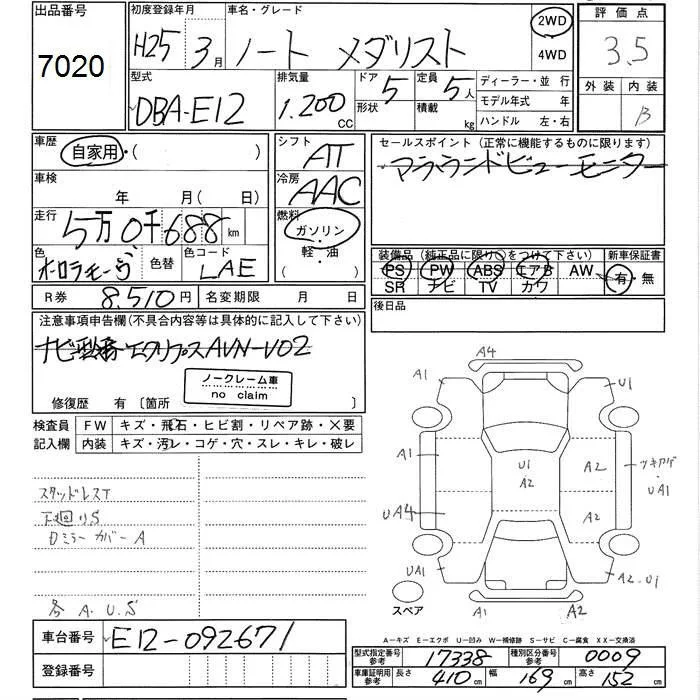 出品番号
7020
初度登録年月
H25 3月
車名・グレード
ノート メダリスト
2WD
4WD
評価点
3.5
外装 内装
B
型式
DBA-E12
排気量
1.200 CC
ドア 形状
5
定員 積載
5人
kg
ディーラー・並 行
モデル年式 年
ハンドル 左・右
車歴
自家用・( )
シフト
AT
セールスポイント (正常に機能するものに限ります)
アラウンドビューモニター
車検
年 月( 日)
冷房
AAC
走行
5万0千688km
燃料
ガソリン
・
軽・油
色
オーロラモーヴ
色替
色コード
LAE
装備品 (純正品に限り○をつけて下さい)
PS PW ABS エアB AW
SR ナビ TV カワ
新車保証書
有・無
R券 8,510円
名変期限 月 日
後日品
注意事項申告欄(不具合内容等は具体的に記入して下さい)
ナビ型番 エクリプスAVN-V02
ノークレーム車
no claim
修復歴 有〔箇所 〕
検査員
記入欄
FW キズ・飛石・ヒビ割・リペア跡・×要
内装 キズ・汚レ・コゲ・穴・スレ・キレ・破レ
スタッドレスT
下廻りS
Dミラーカバー A
各 A.U.S
A4
A1
U1
A1
U1
A2
A2
ツキアゲ
UA1
UA4
A2
UA1
A2.U1
スペア
A1
A2
A-キズ E-エクボ U-凹み W-補修跡 S-サビ C-腐食 XX-交換済
車台番号
E12-092671
登録番号
型式指定番号
参考
17338
種別区分番号
参考
0009
車庫証明用
参考
長さ 410cm
幅 169cm
高さ 152cm